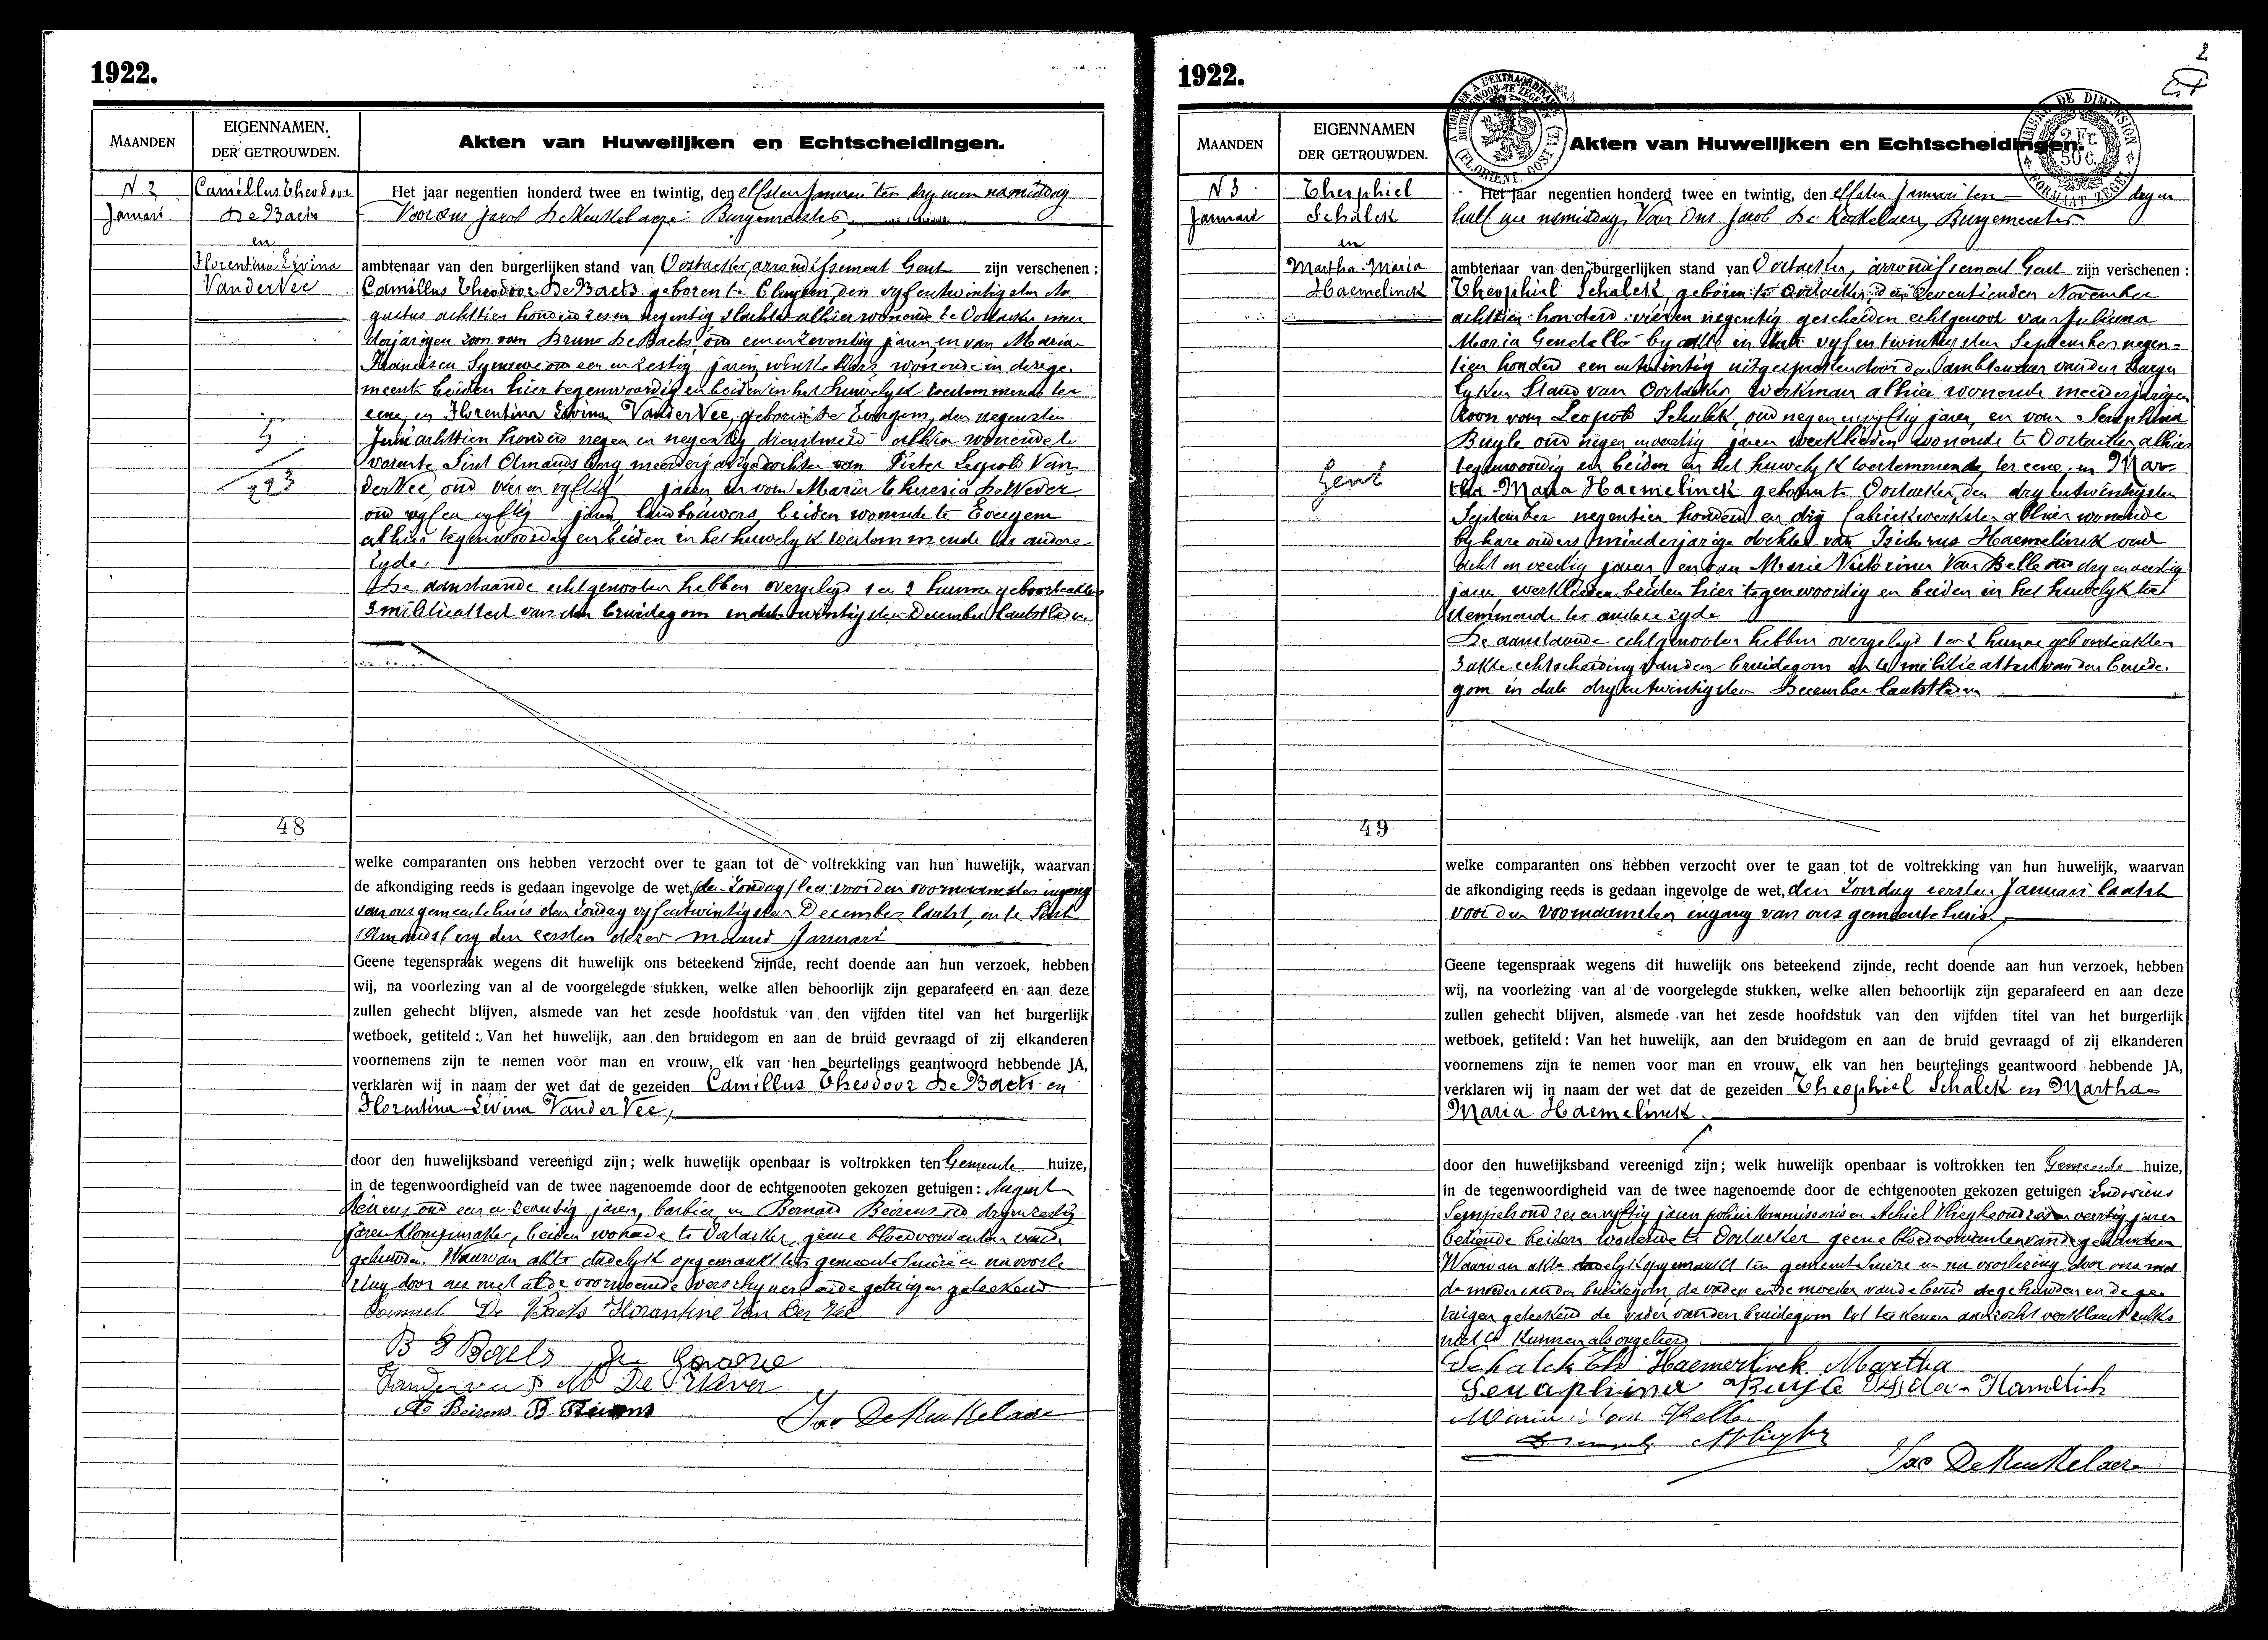 1922.
MAANDEN
EIGENNAMEN.
DER GETROUWDEN.
Akten van Huwelijken en Echtscheidingen.
N 2
Januari
Camillus Theodoor
De Baets
en
Florentina Livina
Van der Vee
5
293
48
Het jaar negentien honderd twee en twintig, den elfsten Januari ten dry uren namiddag
Voor ons Jacob De Keukelaere Burgemeester,
ambtenaar van den burgerlijken stand van Oostacker, arrondissement Gent zijn verschenen:
Camillus Theodoor De Baets geboren te den vyfentwintigsten Au
gustus achttien honderd zes en negentig alhier wonende te Oostacker meer
derjarigen zoon van Bruno De Baets, oud een en zeventig jaren, en van Maria
Francisca oud een en zestig jaren, wonende in deze ge
meente beiden hier tegenwoordig en beiden in het huwelyk toestemmende ter
eene, en Florentina Livina Van der Vee, geboren te Evergem, den negensten
Juni achttien honderd negen en negentig dienstmeid alhier wonende te
vorente Sint Amandsberg meerderjarige dochter van Pieter Leopold Van
der Vee, oud vier en vyftig jaren, en van Maria Theresia De Wever
oud vyf en vyftig jaren, landbouwers, beiden wonende te Evergem
alhier tegenwoordig en beiden in het huwelyk toestemmende ter andere
zyde.
De aanstaande echtgenooten hebben overgelegd 1 en 2 hunne geboorteakten
3 militieattest van den bruidegom in date twintigsten December laatstleden
welke comparanten ons hebben verzocht over te gaan tot de voltrekking van hun huwelijk, waarvan
de afkondiging reeds is gedaan ingevolge de wet, den Zondag lees: voor den voornaamsten ingang
van ons gemeentehuis den Zondag vyfentwintigsten December laatst, en te Sint
Amandsberg den eersten dezer maand Januari
Geene tegenspraak wegens dit huwelijk ons beteekend zijnde, recht doende aan hun verzoek, hebben
wij, na voorlezing van al de voorgelegde stukken, welke allen behoorlijk zijn geparafeerd en aan deze
zullen gehecht blijven, alsmede van het zesde hoofdstuk van den vijfden titel van het burgerlijk
wetboek, getiteld: Van het huwelijk, aan den bruidegom en aan de bruid gevraagd of zij elkanderen
voornemens zijn te nemen voor man en vrouw, elk van hen beurtelings geantwoord hebbende JA,
verklaren wij in naam der wet dat de gezeiden Camillus Theodoor De Baets en
Florentina Livina Van der Vee,
door den huwelijksband vereenigd zijn; welk huwelijk openbaar is voltrokken ten Gemeente huize,
in de tegenwoordigheid van de twee nagenoemde door de echtgenooten gekozen getuigen: August
Beirens oud een en zeventig jaren, barbier, en Bernard Beirens oud dryenzestig
jaren klompmaker, beiden wonende te Oostacker, geene bloedverwanten van de
gehuwden. Waarvan akte dadelyk opgemaakt ten gemeentehuize en na voorle
zing door ons met al de voornoemde verschynenden en de getuigen geteekend
De Baets Florentine Van der Vee
B De Baets
M De Wever
A Beirens B. Beirens
Jac De Keukelaere
1922.
2
MAANDEN
EIGENNAMEN
DER GETROUWDEN.
Akten van Huwelijken en Echtscheidingen.
N 3
Januari
Theophiel
Schalck
en
Martha-Maria
Haemelinck
Gent
49
Het jaar negentien honderd twee en twintig, den elfsten Januari ten dry en
half ure namiddag, Voor Ons Jacob De Keukelaere, Burgemeester
ambtenaar van den burgerlijken stand van Oostacker, arrondissement Gent zijn verschenen:
Theophiel Schalck, geboren te Oostacker, den zeventienden November
achttien honderd vier en negentig gescheiden echtgenoot van Juliana
Maria by akte in date vyfentwintigsten September negen=
tien honderd een en twintig uitgesproken door den ambtenaar van den Burger
lyken Stand van Oostacker, werkman alhier wonende meerderjarigen
zoon van Leopold Schalck, oud negen en vyftig jaren, en van Seraphina
Buyle oud negen en veertig jaren werklieden wonende te Oostacker alhier
tegenwoordig en beiden in het huwelyk toestemmende, ter eene, en Mar-
tha-Maria Haemelinck geboren te Oostacker, den dry entwintigsten
September negentien honderd en dry fabriekwerkster alhier wonende
by hare ouders minderjarige dochter van Isidorus Haemelinck oud
acht en veertig jaren en van Marie Victorine Van Belle oud dry en veertig
jaren werklieden beiden hier tegenwoordig en beiden in het huwelyk toe
stemmende ter andere zyde
De aanstaande echtgenooten hebben overgelegd 1 en 2 hunne geboorteakten
3 akte echtscheiding van den bruidegom en 4 militieattest van den bruide-
gom in date dry entwintigsten December laatstleden
welke comparanten ons hebben verzocht over te gaan tot de voltrekking van hun huwelijk, waarvan
de afkondiging reeds is gedaan ingevolge de wet, den Zondag eersten Januari laatst
voor den voornaamsten ingang van ons gemeentehuis,
Geene tegenspraak wegens dit huwelijk ons beteekend zijnde, recht doende aan hun verzoek, hebben
wij, na voorlezing van al de voorgelegde stukken, welke allen behoorlijk zijn geparafeerd en aan deze
zullen gehecht blijven, alsmede van het zesde hoofdstuk van den vijfden titel van het burgerlijk
wetboek, getiteld: Van het huwelijk, aan den bruidegom en aan de bruid gevraagd of zij elkanderen
voornemens zijn te nemen voor man en vrouw, elk van hen beurtelings geantwoord hebbende JA,
verklaren wij in naam der wet dat de gezeiden Theophiel Schalck en Martha-
Maria Haemelinck.
door den huwelijksband vereenigd zijn; welk huwelijk openbaar is voltrokken ten Gemeente huize,
in de tegenwoordigheid van de twee nagenoemde door de echtgenooten gekozen getuigen Ludovicus
oud zes en vyftig jaren policiekommissaris en Achiel oud en veertig jaren
bediende beiden wonende te Oostacker geene bloedverwanten van de gehuwden
Waarvan akte dadelyk opgemaakt ten gemeentehuize en na voorlezing door ons met
de moeder van den bruidegom, de vader en de moeder van de bruid de gehuwden en de ge-
tuigen geteekend de vader van den bruidegom tot teekenen aanzocht verklaart zulks
niet te kunnen als ongeleerd.
Schalck Th Haemerlinck Martha
Seraphina Buyle
Jac De Keukelaere